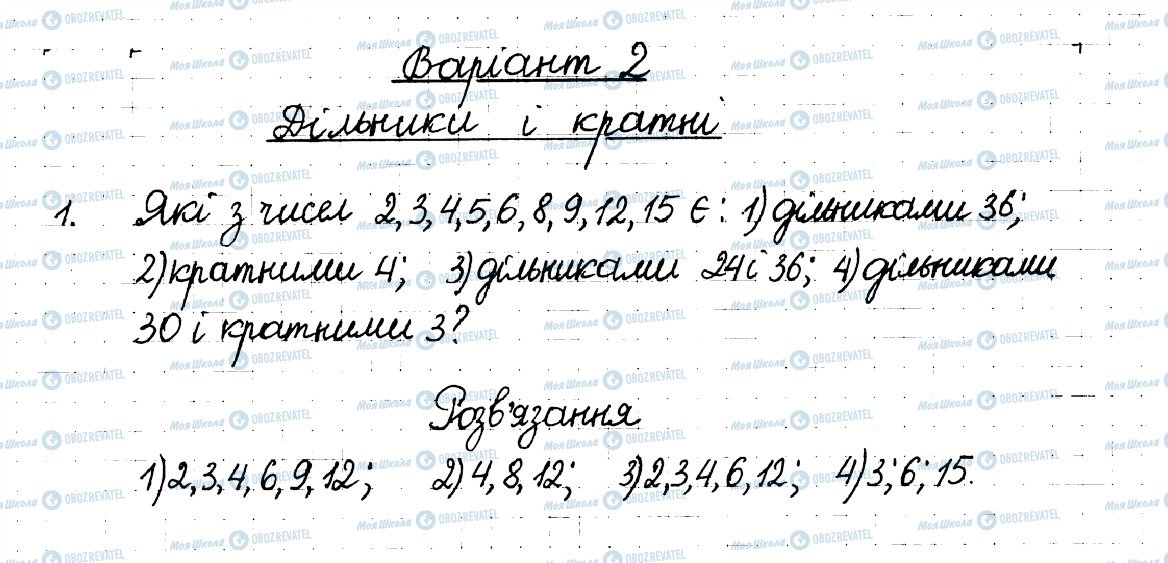 Варіант 2
Дільники і кратні
1. Які з чисел 2, 3, 4, 5, 6, 8, 9, 12, 15 є: 1) дільниками 36;
2) кратними 4; 3) дільниками 24 і 36; 4) дільниками
30 і кратними 3?
Розв'язання
1) 2, 3, 4, 6, 9, 12; 2) 4, 8, 12; 3) 2, 3, 4, 6, 12; 4) 3; 6; 15.